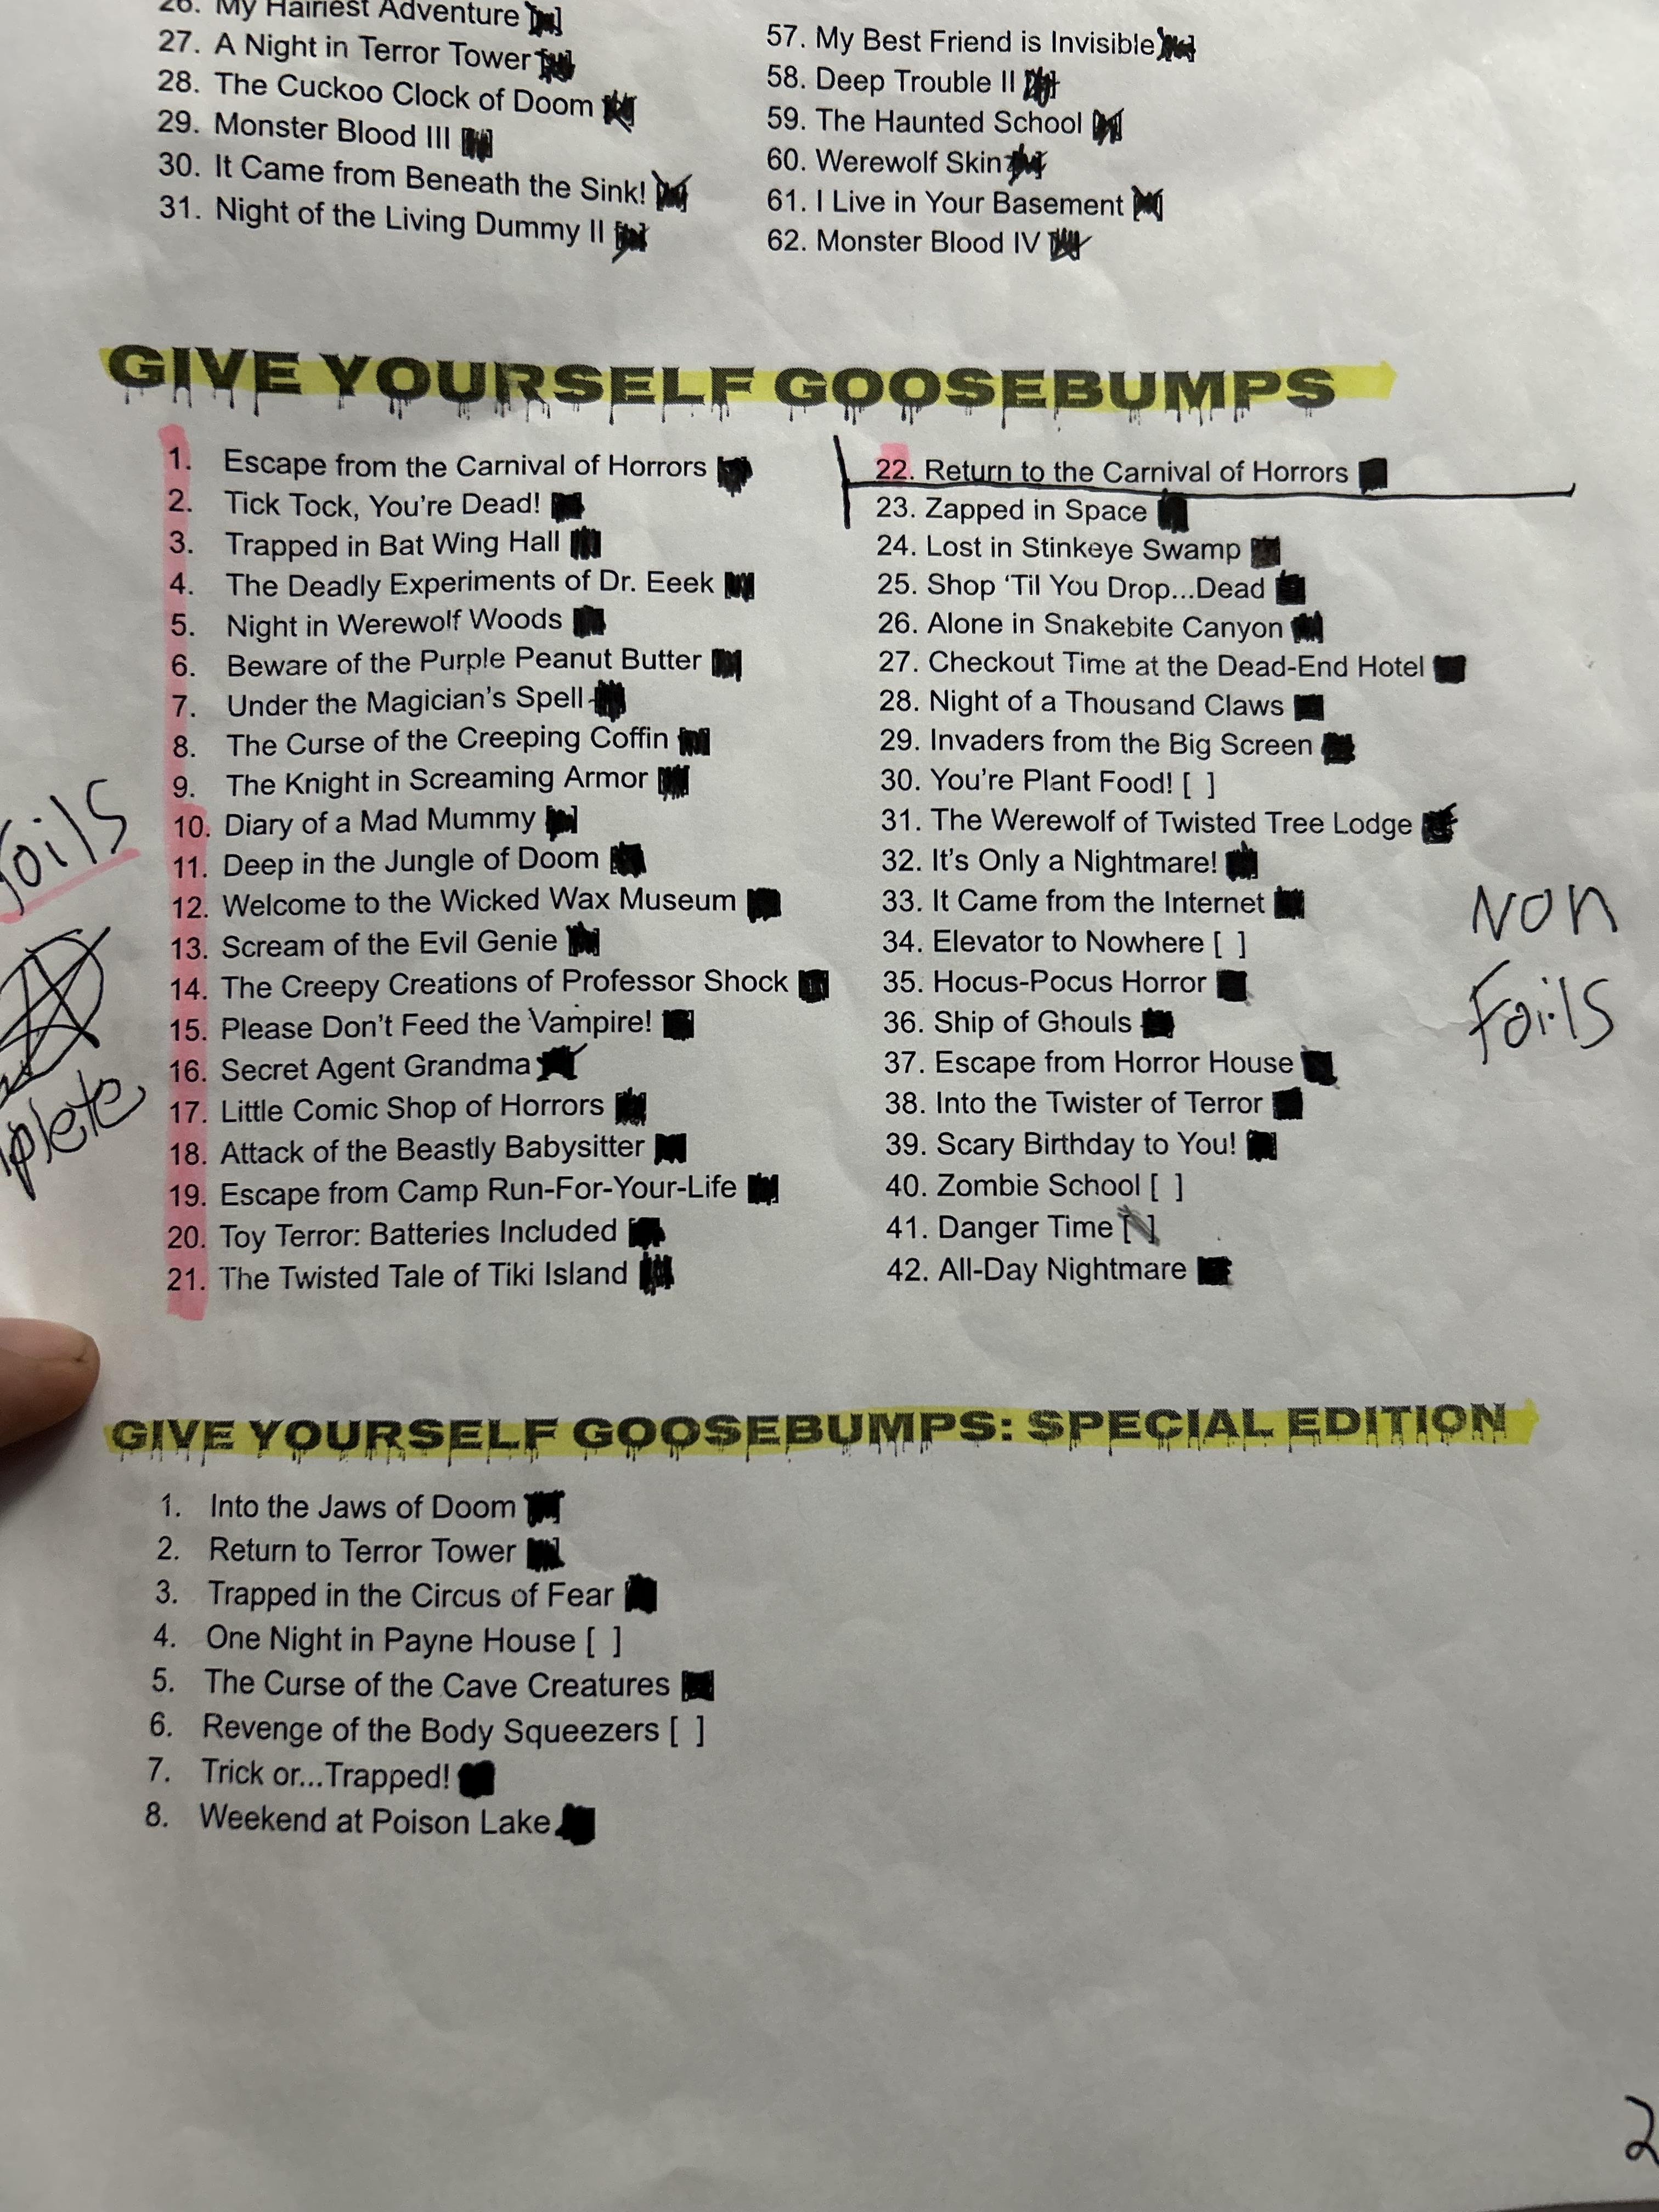 26. My Hairiest Adventure
27. A Night in Terror Tower
28. The Cuckoo Clock of Doom
29. Monster Blood III
30. It Came from Beneath the Sink!
31. Night of the Living Dummy II
57. My Best Friend is Invisible
58. Deep Trouble II
59. The Haunted School
60. Werewolf Skin
61. I Live in Your Basement
62. Monster Blood IV
GIVE YOURSELF GOOSEBUMPS
1. Escape from the Carnival of Horrors
2. Tick Tock, You're Dead!
3. Trapped in Bat Wing Hall
4. The Deadly Experiments of Dr. Eeek
5. Night in Werewolf Woods
6. Beware of the Purple Peanut Butter
7. Under the Magician's Spell
8. The Curse of the Creeping Coffin
9. The Knight in Screaming Armor
10. Diary of a Mad Mummy
11. Deep in the Jungle of Doom
12. Welcome to the Wicked Wax Museum
13. Scream of the Evil Genie
14. The Creepy Creations of Professor Shock
15. Please Don't Feed the Vampire!
16. Secret Agent Grandma
17. Little Comic Shop of Horrors
18. Attack of the Beastly Babysitter
19. Escape from Camp Run-For-Your-Life
20. Toy Terror: Batteries Included
21. The Twisted Tale of Tiki Island
Foils
plete
22. Return to the Carnival of Horrors
23. Zapped in Space
24. Lost in Stinkeye Swamp
25. Shop 'Til You Drop...Dead
26. Alone in Snakebite Canyon
27. Checkout Time at the Dead-End Hotel
28. Night of a Thousand Claws
29. Invaders from the Big Screen
30. You're Plant Food! [ ]
31. The Werewolf of Twisted Tree Lodge
32. It's Only a Nightmare!
33. It Came from the Internet
34. Elevator to Nowhere [ ]
35. Hocus-Pocus Horror
36. Ship of Ghouls
37. Escape from Horror House
38. Into the Twister of Terror
39. Scary Birthday to You!
40. Zombie School [ ]
41. Danger Time [ ]
42. All-Day Nightmare
Non
Foils
GIVE YOURSELF GOOSEBUMPS: SPECIAL EDITION
1. Into the Jaws of Doom
2. Return to Terror Tower
3. Trapped in the Circus of Fear
4. One Night in Payne House [ ]
5. The Curse of the Cave Creatures
6. Revenge of the Body Squeezers [ ]
7. Trick or...Trapped!
8. Weekend at Poison Lake
2